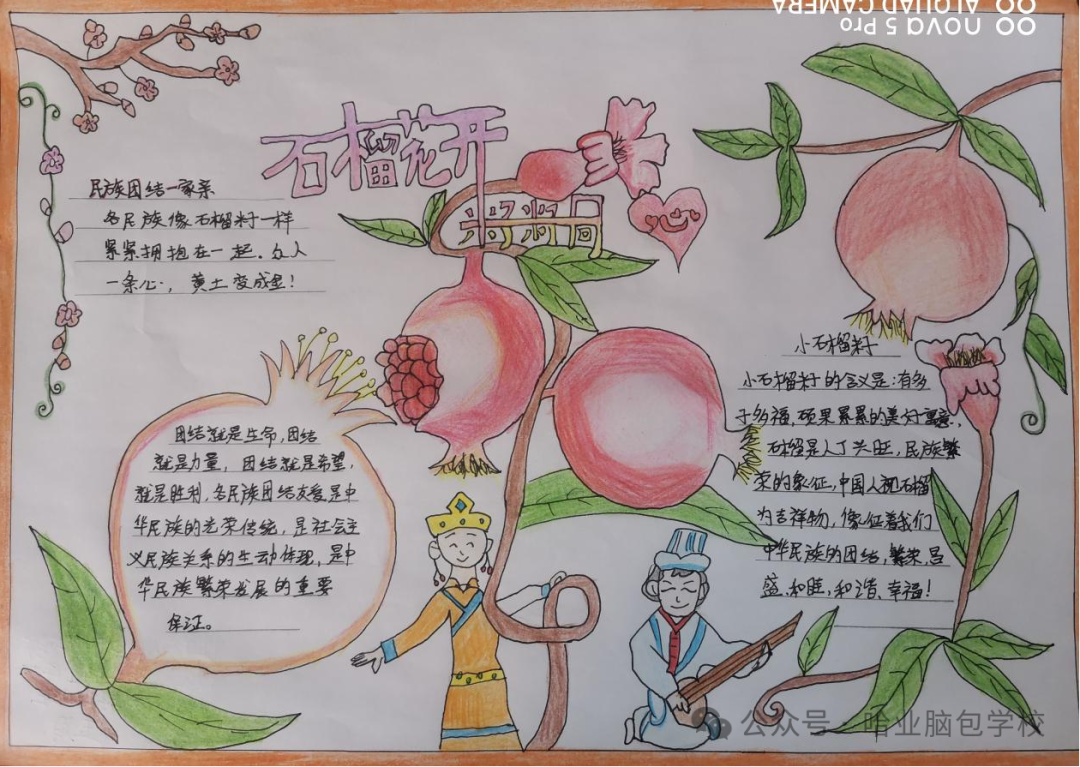 石榴花开
籽籽同心
民族团结一家亲
各民族像石榴籽一样
紧紧拥抱在一起。众人
一条心，黄土变成金！
团结就是生命，团结
就是力量，团结就是希望，
就是胜利，各民族团结友爱是中
华民族的光荣传统，是社会主
义民族关系的生动体现，是中
华民族繁荣发展的重要
保证。
小石榴籽
小石榴籽的含义是：有多
子多福，硕果累累的美好寓意，
石榴是人丁兴旺，民族繁
荣的象征，中国人视石榴
为吉祥物，像征着我们
中华民族的团结，繁荣，昌
盛，和睦，和谐、幸福！
nova 5 Pro
AI QUAD CAMERA
公众号·哈业脑包学校